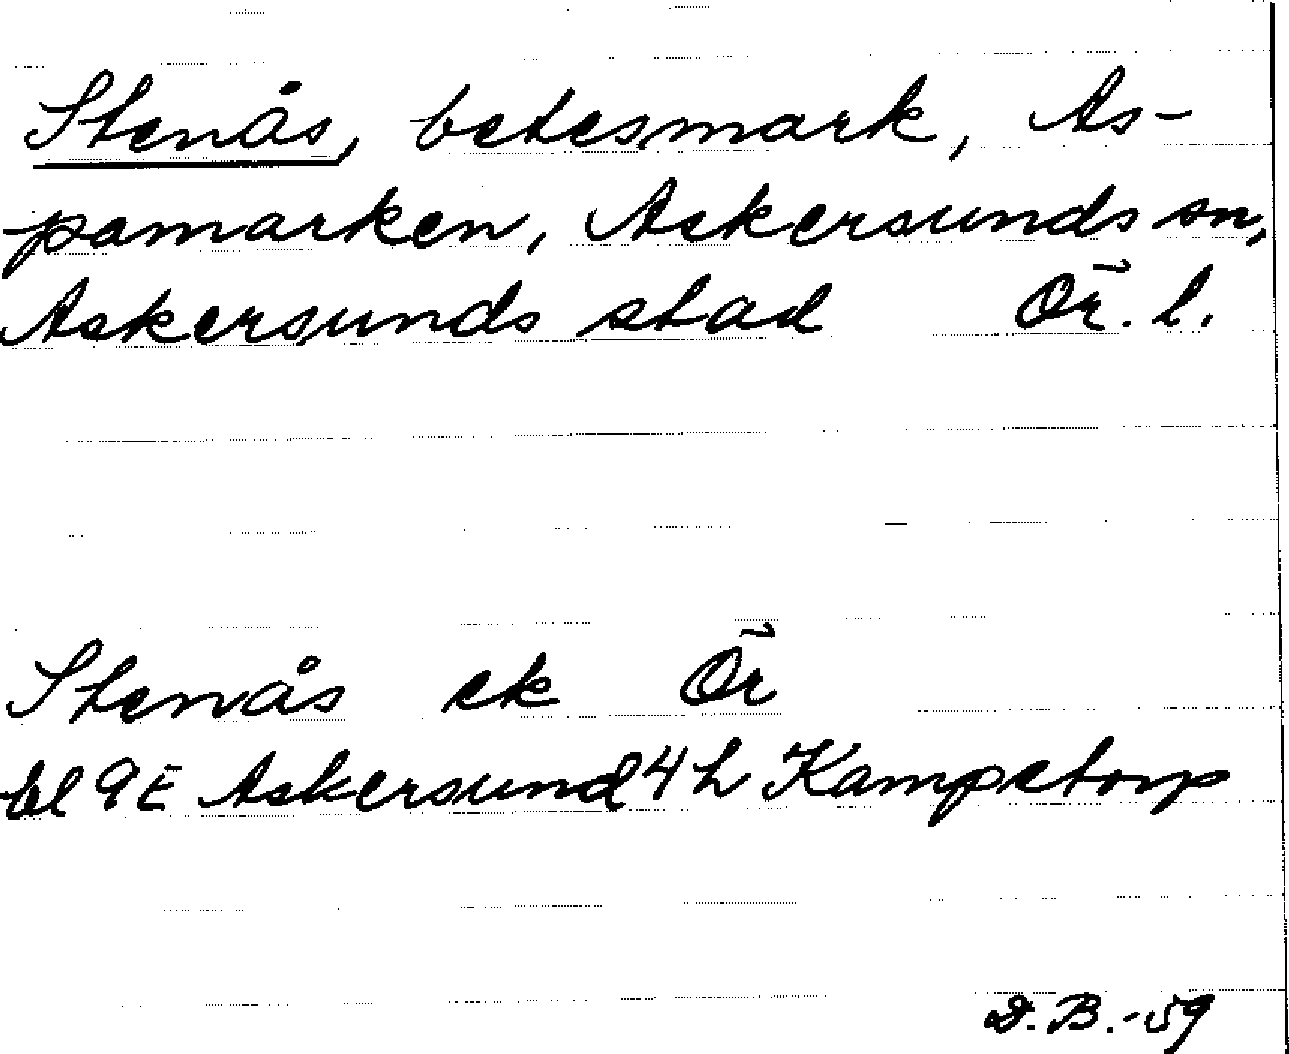 Stenås, betesmark, As-
pamarken, Askersunds sn,
Askersunds stad Ör. l.
Stenås ek Ör
bl 9E Askersund 4 h Kampetorp
D.B.-59